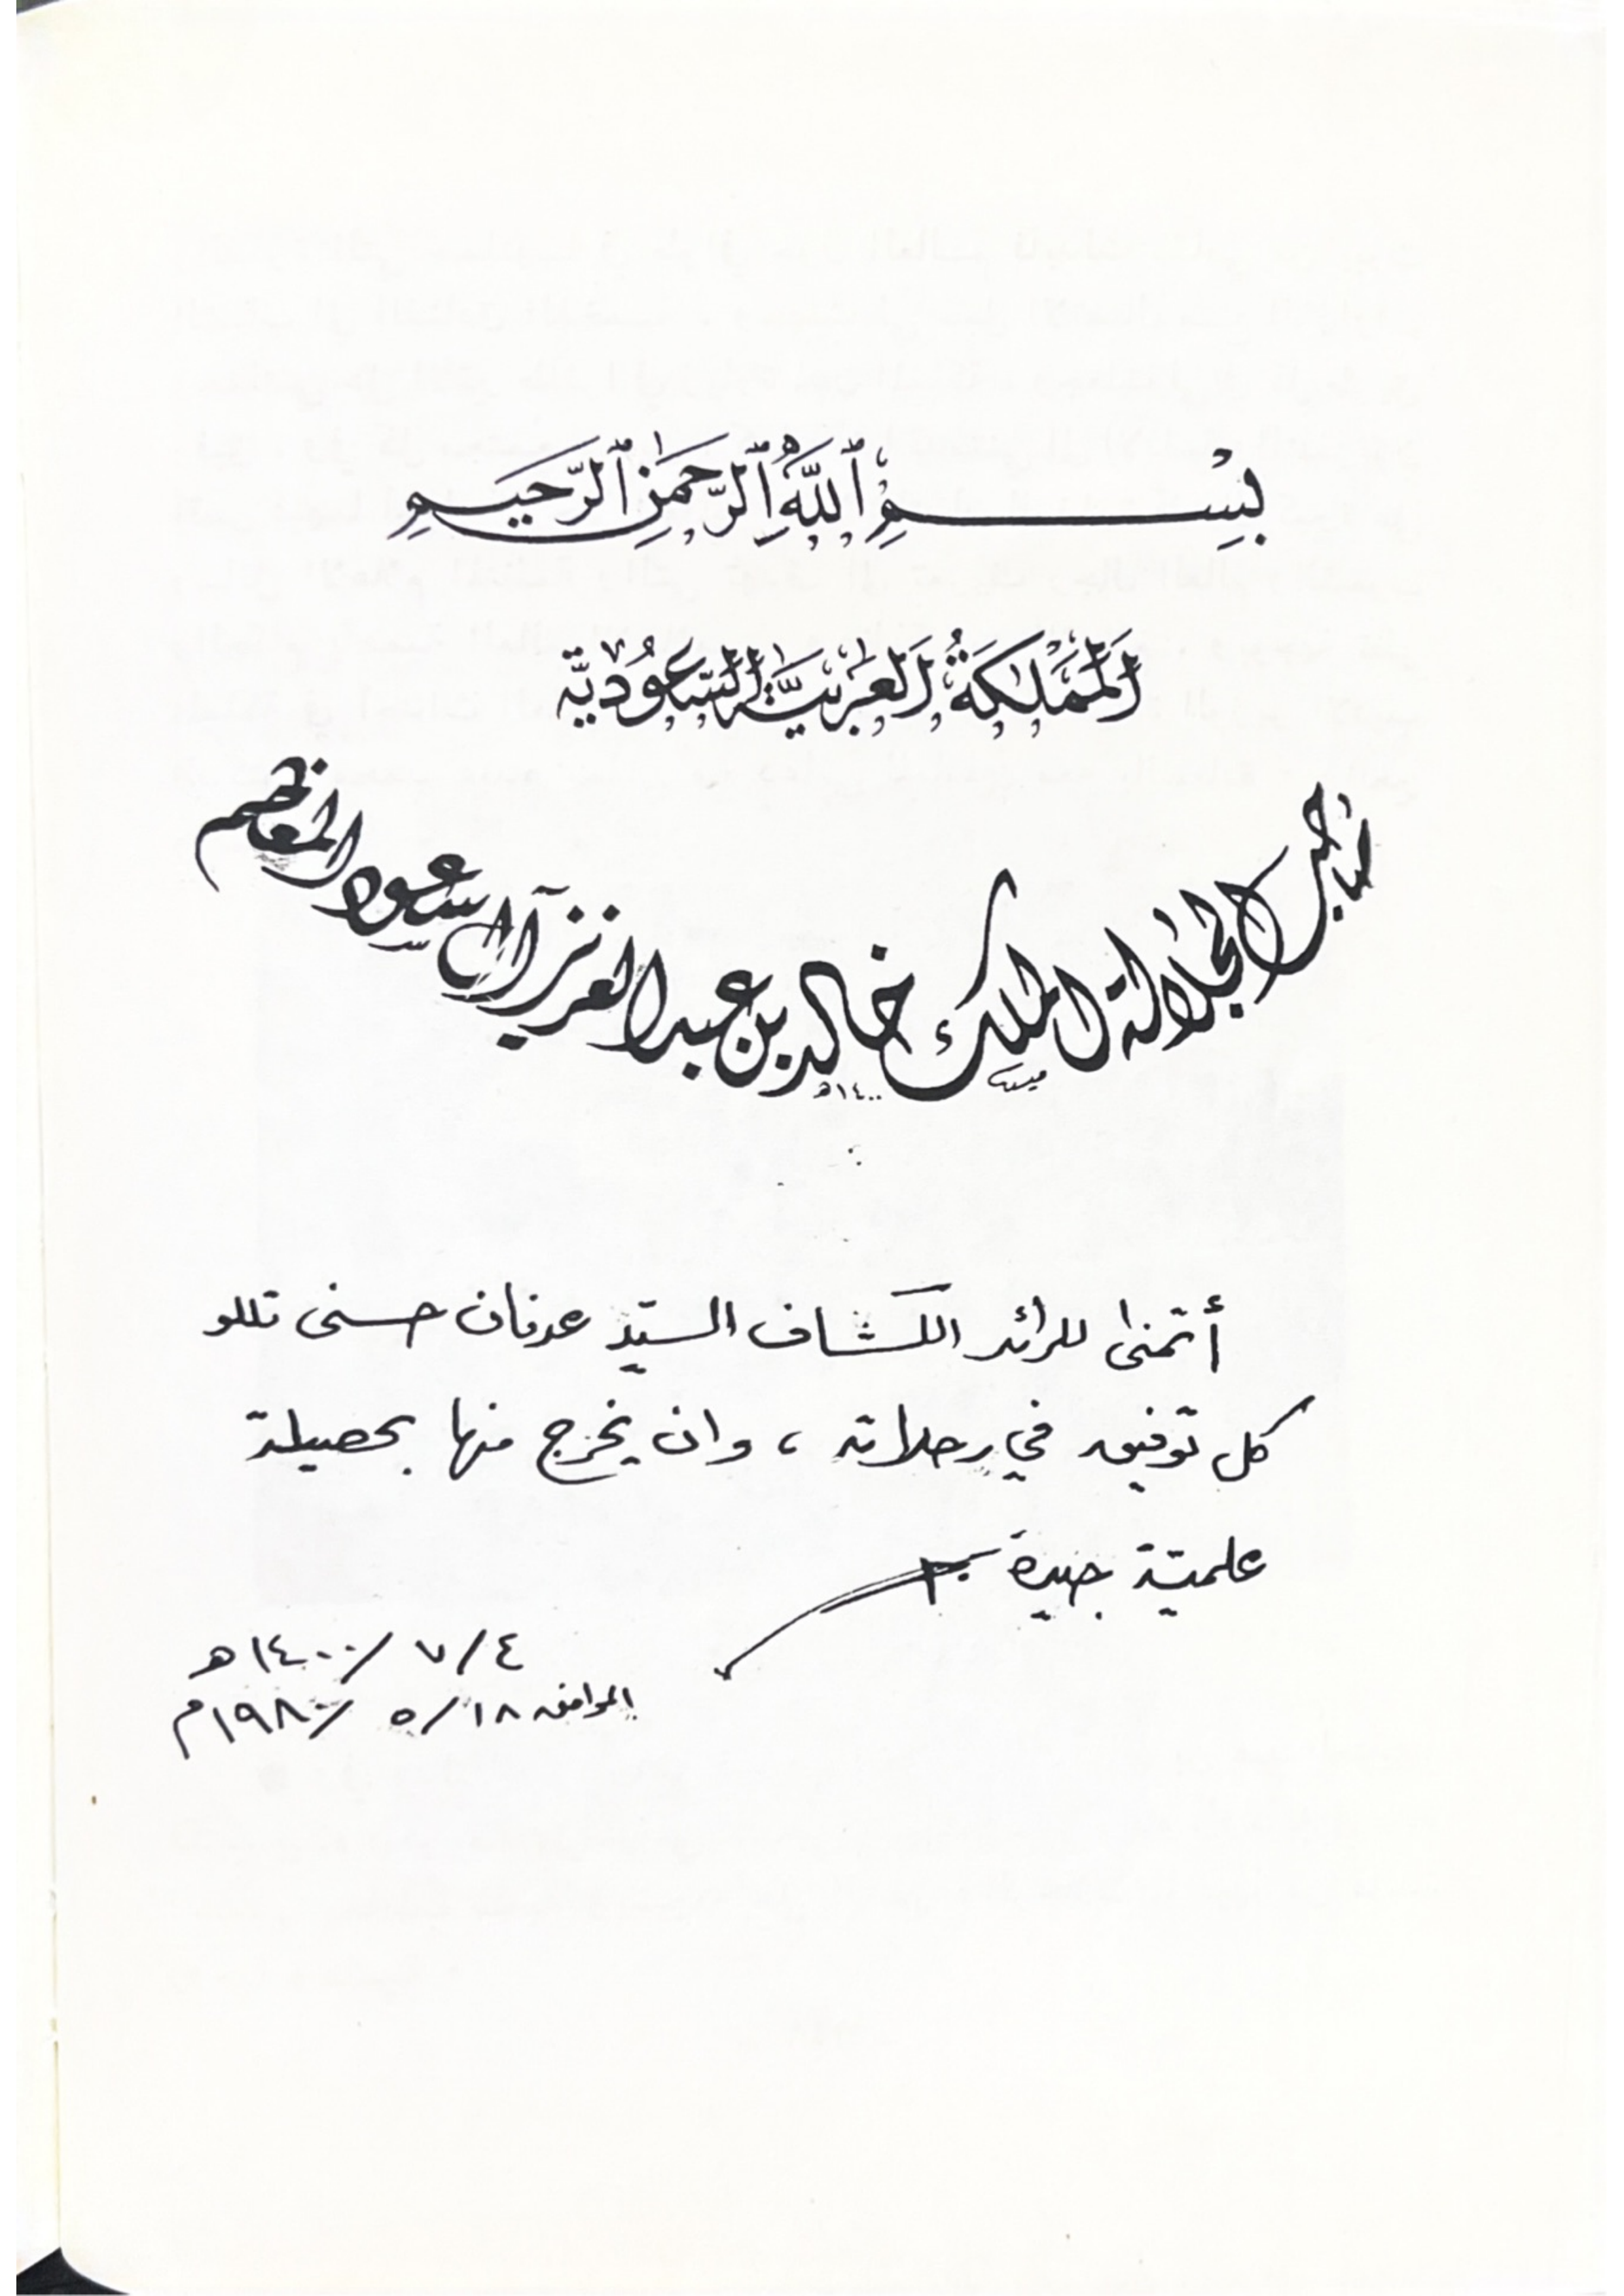 بِسْمِ ٱللَّهِ ٱلرَّحْمَنِ ٱلرَّحِيمِ
اَلْمَمْلَكَةُ اَلْعَرَبِيَّةُ السَّعُودِيَّة
صاحب الجلالة الملك خالد بن عبد العزيز آل سعود المعظم
١٤٠٠هـ
أتمنى للرائد الكشاف السيّد عدنان حسنى تللو
كل توفيق في رحلاته ، وان يخرج منها بحصيلة
علميّة جيدة
٤/ ٧ /١٤٠٠ هـ
الموافق ١٨/ ٥ /١٩٨٠م